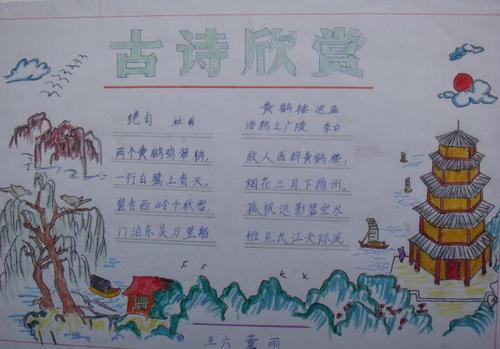 古诗欣赏
绝句 杜甫
两个黄鹂鸣翠柳,
一行白鹭上青天。
窗含西岭千秋雪
门泊东吴万里船
黄鹤楼送孟
浩然之广陵 李白
故人西辞黄鹤楼,
烟花三月下扬州。
孤帆远影碧空尽
惟见长江天际流
五六 董雨